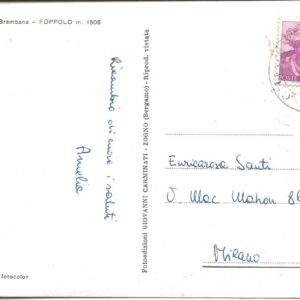 Brembana - FOPPOLO m. 1508
Ricambio di cuore i saluti
Amelia
Fotoedizioni GIOVANNI CARMINATI - ZOGNO (Bergamo) - Riprod. vietata
Enricarosa Santi
V. Mac Mahon 86
Milano
fotocolor